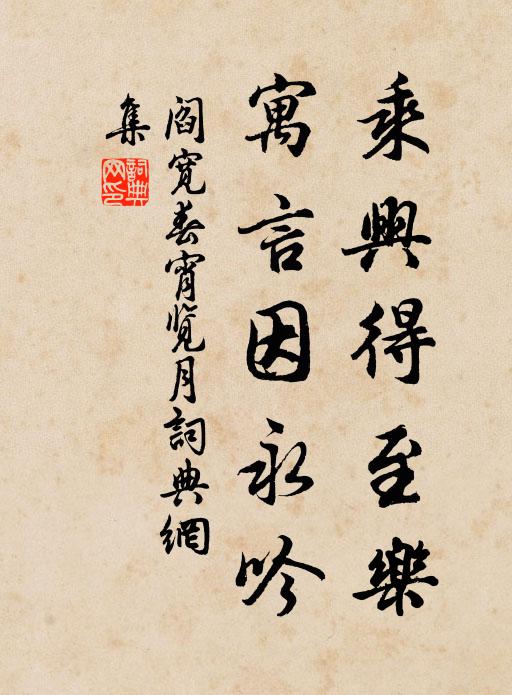 乘興得至樂
寓言因永吟
閻寬春宵覽月詞典網
集
詞典網印